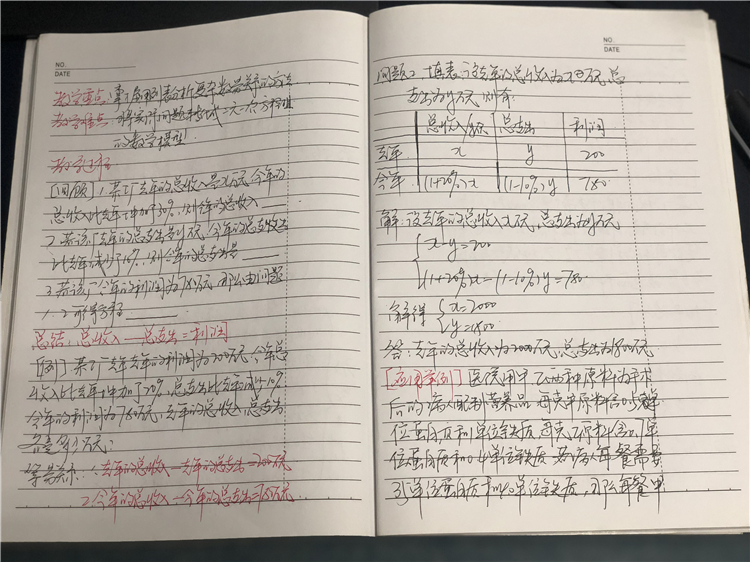 NO.
DATE
教学重点:掌握用列表分析要求数量关系的方法
教学难点:将实际问题转化成二元一次方程组
的数学模型.
教学过程
[回顾] 1.某工厂去年的总收入是x万元,今年的
总收入比去年增加了20%,则今年的总收入____
2.若该厂去年的总支出为y万元,今年的总支出
比去年减少了10%,则今年的总支出是____
3.若该厂今年的利润为780万元,那么由问题
1、2可得方程____
总结:总收入—总支出=利润
[例] 某工厂去年的利润为200万元,今年总
收入比去年增加了20%,总支出比去年减少10%
今年的利润为780万元,去年的总收入,总支出
各是多少万元?
等量关系:1.去年的总收入—去年的总支出=200万元
2.今年的总收入—今年的总支出=780万元.
NO.
DATE
问题2.填表:设去年的总收入为x万元,总
支出为y万元,则有:
总收入/万元 总支出 利润
去年 x y 200
今年 (1+20%)x (1-10%)y 780
解:设去年的总收入x万元,总支出为y万元
x-y=200
(1+20%)x-(1-10%)y=780
解得 x=2000
y=1800
答:去年的总收入为2000万元,总支出为1800万元
[应用举例] 医院用甲乙两种原料为手术
后的病人配制营养品,每克甲原料含0.5单
位蛋白质和1单位铁质,每克乙原料含0.7单
位蛋白质和0.4单位铁质,若病人每餐需要
35单位蛋白质和40单位铁质,那么每餐甲